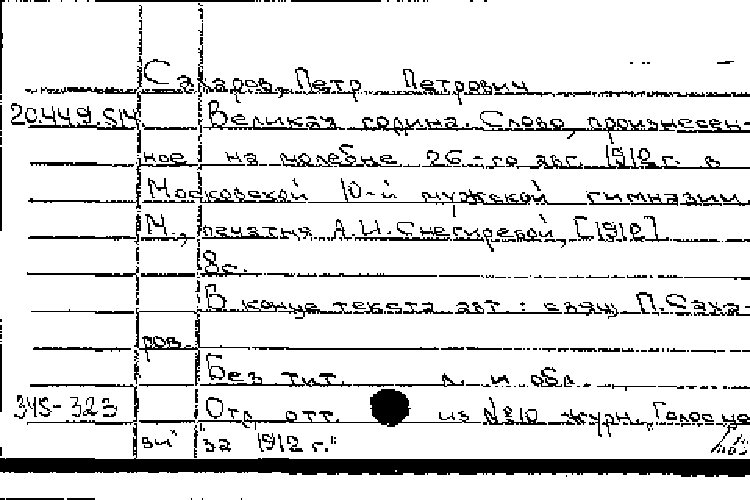 Сахаров, Петр Петрович
20.449.514 Великая година. Слово, произнесен-
ное на молебне 26-го авг. 1912 г. в
Московской 10-й мужской гимназии
М., печатня А.И. Снегиревой, [1912]
8с.
В конце текста авт: свящ. П. Саха-
ров.
Без тит. л. и обл.
345-323 Отд. отт. из №10 журн. "Голос це
" за 1912 г."